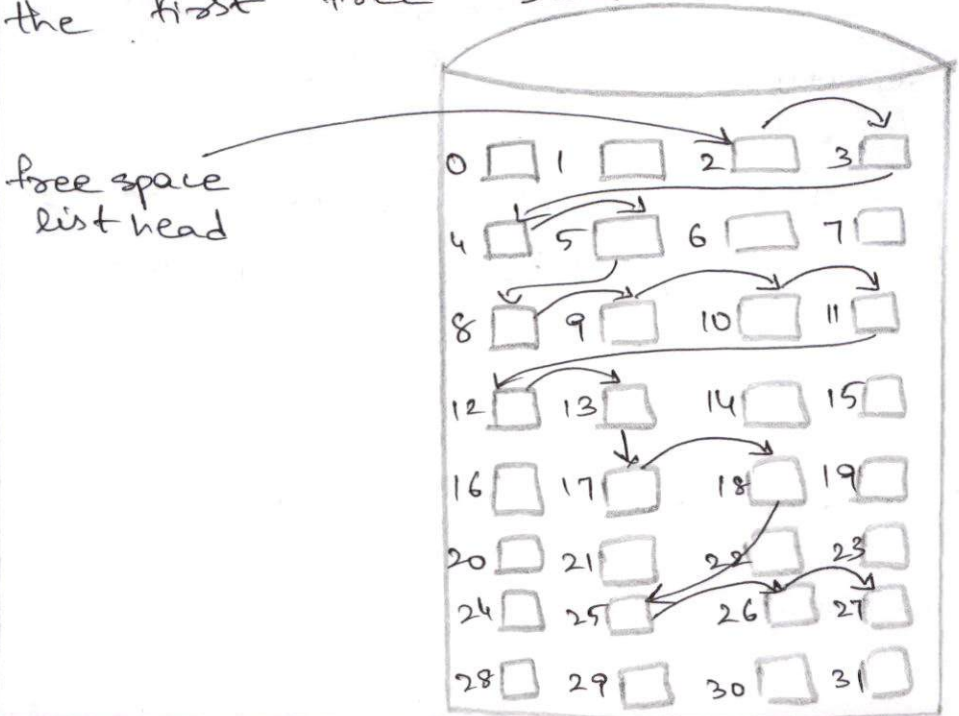 the first free
free space
list head
0 1 2 3
4 5 6 7
8 9 10 11
12 13 14 15
16 17 18 19
20 21 22 23
24 25 26 27
28 29 30 31